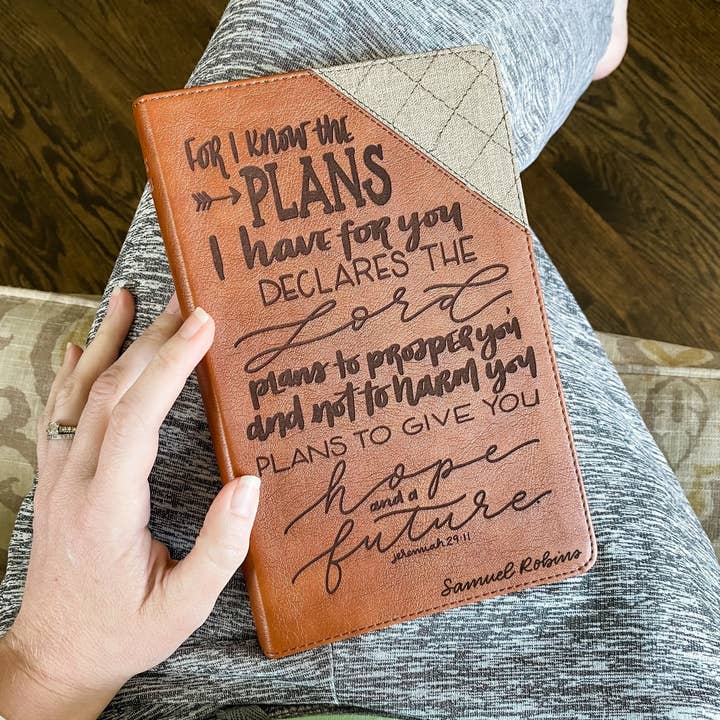 FOR I KNOW THE
PLANS
I have for you
DECLARES THE
Lord
plans to prosper you
and not to harm you
PLANS TO GIVE YOU
hope
and a
future.
Jeremiah 29:11
Samuel Robins